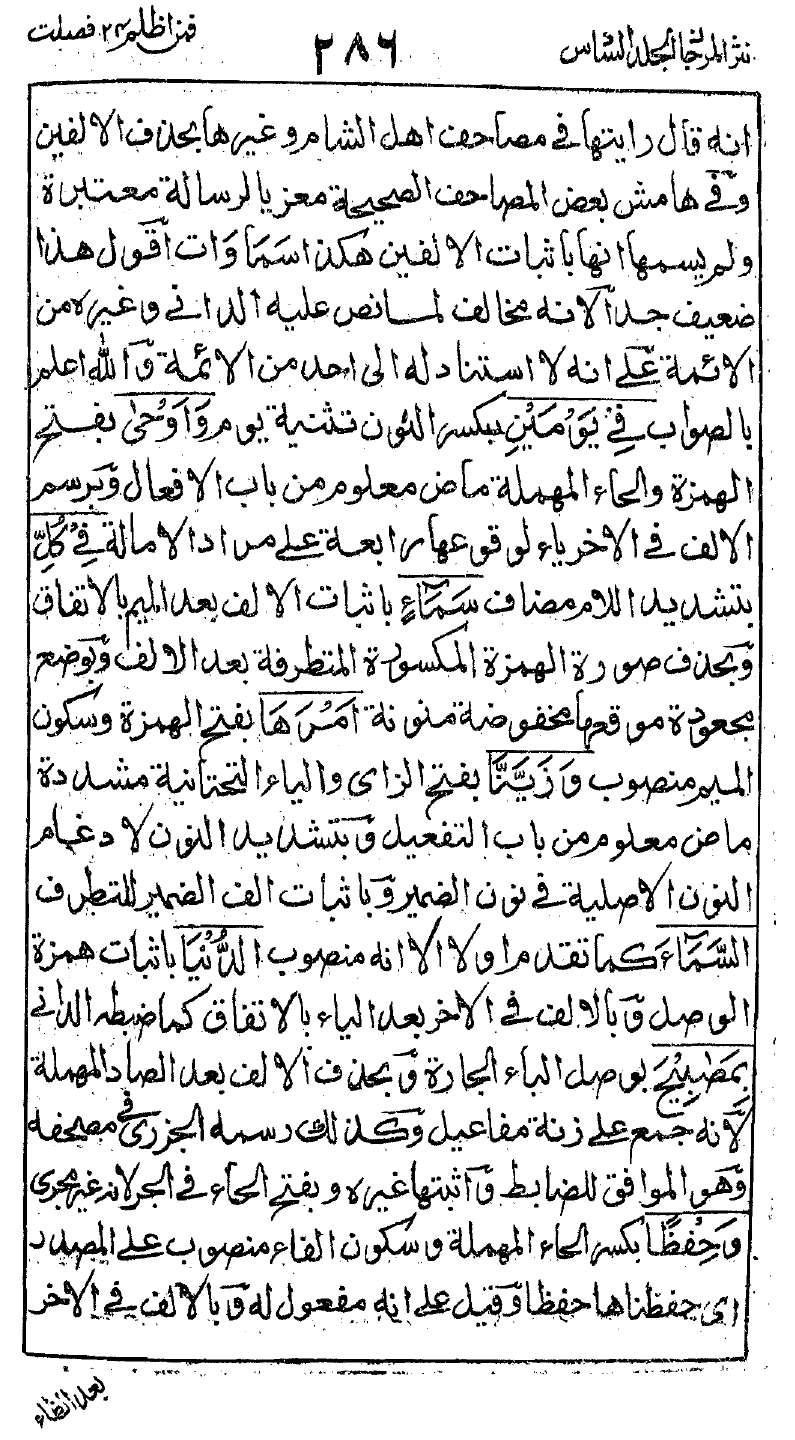 نثر المرجان الجلد السادس ٢٨٦ فمن اظلم ٢٤ فصلت
انه قال رايتها في مصاحف اهل الشام وغيرها بحذف الالفين
وَفي هامش بعض المصاحف الصحيحة معزيا لرسالة معتبرة
ولم يسمها انها باثبات الالفين هكذا سَمَاوَات اَقول هذا
ضعيف جدا لَانه مخالف لما نص عليه الداني وغيره من
الائمة عَلى انه لا استناد له الى احد من الائمة وَالله اعلم
بالصواب فِيْ يَوْمَيْنِ بكسر النون تثنية يوم وَاَوْحٰى بفتح
الهمزة والحاء المهملة ماض معلوم من باب الافعال وَبرسم
الالف في الاخر ياء لوقوعها رابعة على مراد الامالة فِيْ كُلِّ
بتشديد اللام مضاف سَمَآءٍ باثبات الالف بعد الميم بالاتفاق
وَبحذف صورة الهمزة المكسورة المتطرفة بعد الالف وَبوضع
مجعودة موقعها مخفوضة منونة اَمْرَهَا بفتح الهمزة وسكون
الميم منصوب وَزَيَّنَّا بفتح الزاى والياء التحتانية مشددة
ماض معلوم من باب التفعيل وَبتشديد النون لادغام
النون الاصلية في نون الضمير وَباثبات الف الضمير للتطرف
السَّمَآءَ كما تقدم اولا الا انه منصوب الدُّنْيَا باثبات همزة
الوصل وَبالالف في الاخر بعد الياء بالاتفاق كما ضبطه الداني
بِمَصٰبِيْحَ بوصل الباء الجارة وَبحذف الالف بعد الصاد المهملة
لانه جمع على زنة مفاعيل وَكذلك رسمه الجزرى في مصحفه
وَهو الموافق للضابط وَاثبتها غيره وبفتح الحاء في الجر لانه غير مجرى
وَحِفْظًا بكسر الحاء المهملة وسكون الفاء منصوب على المصدر
اى حفظناها حفظا وَقيل على انه مفعول له وَبالالف في الاخر
بعد الظاء